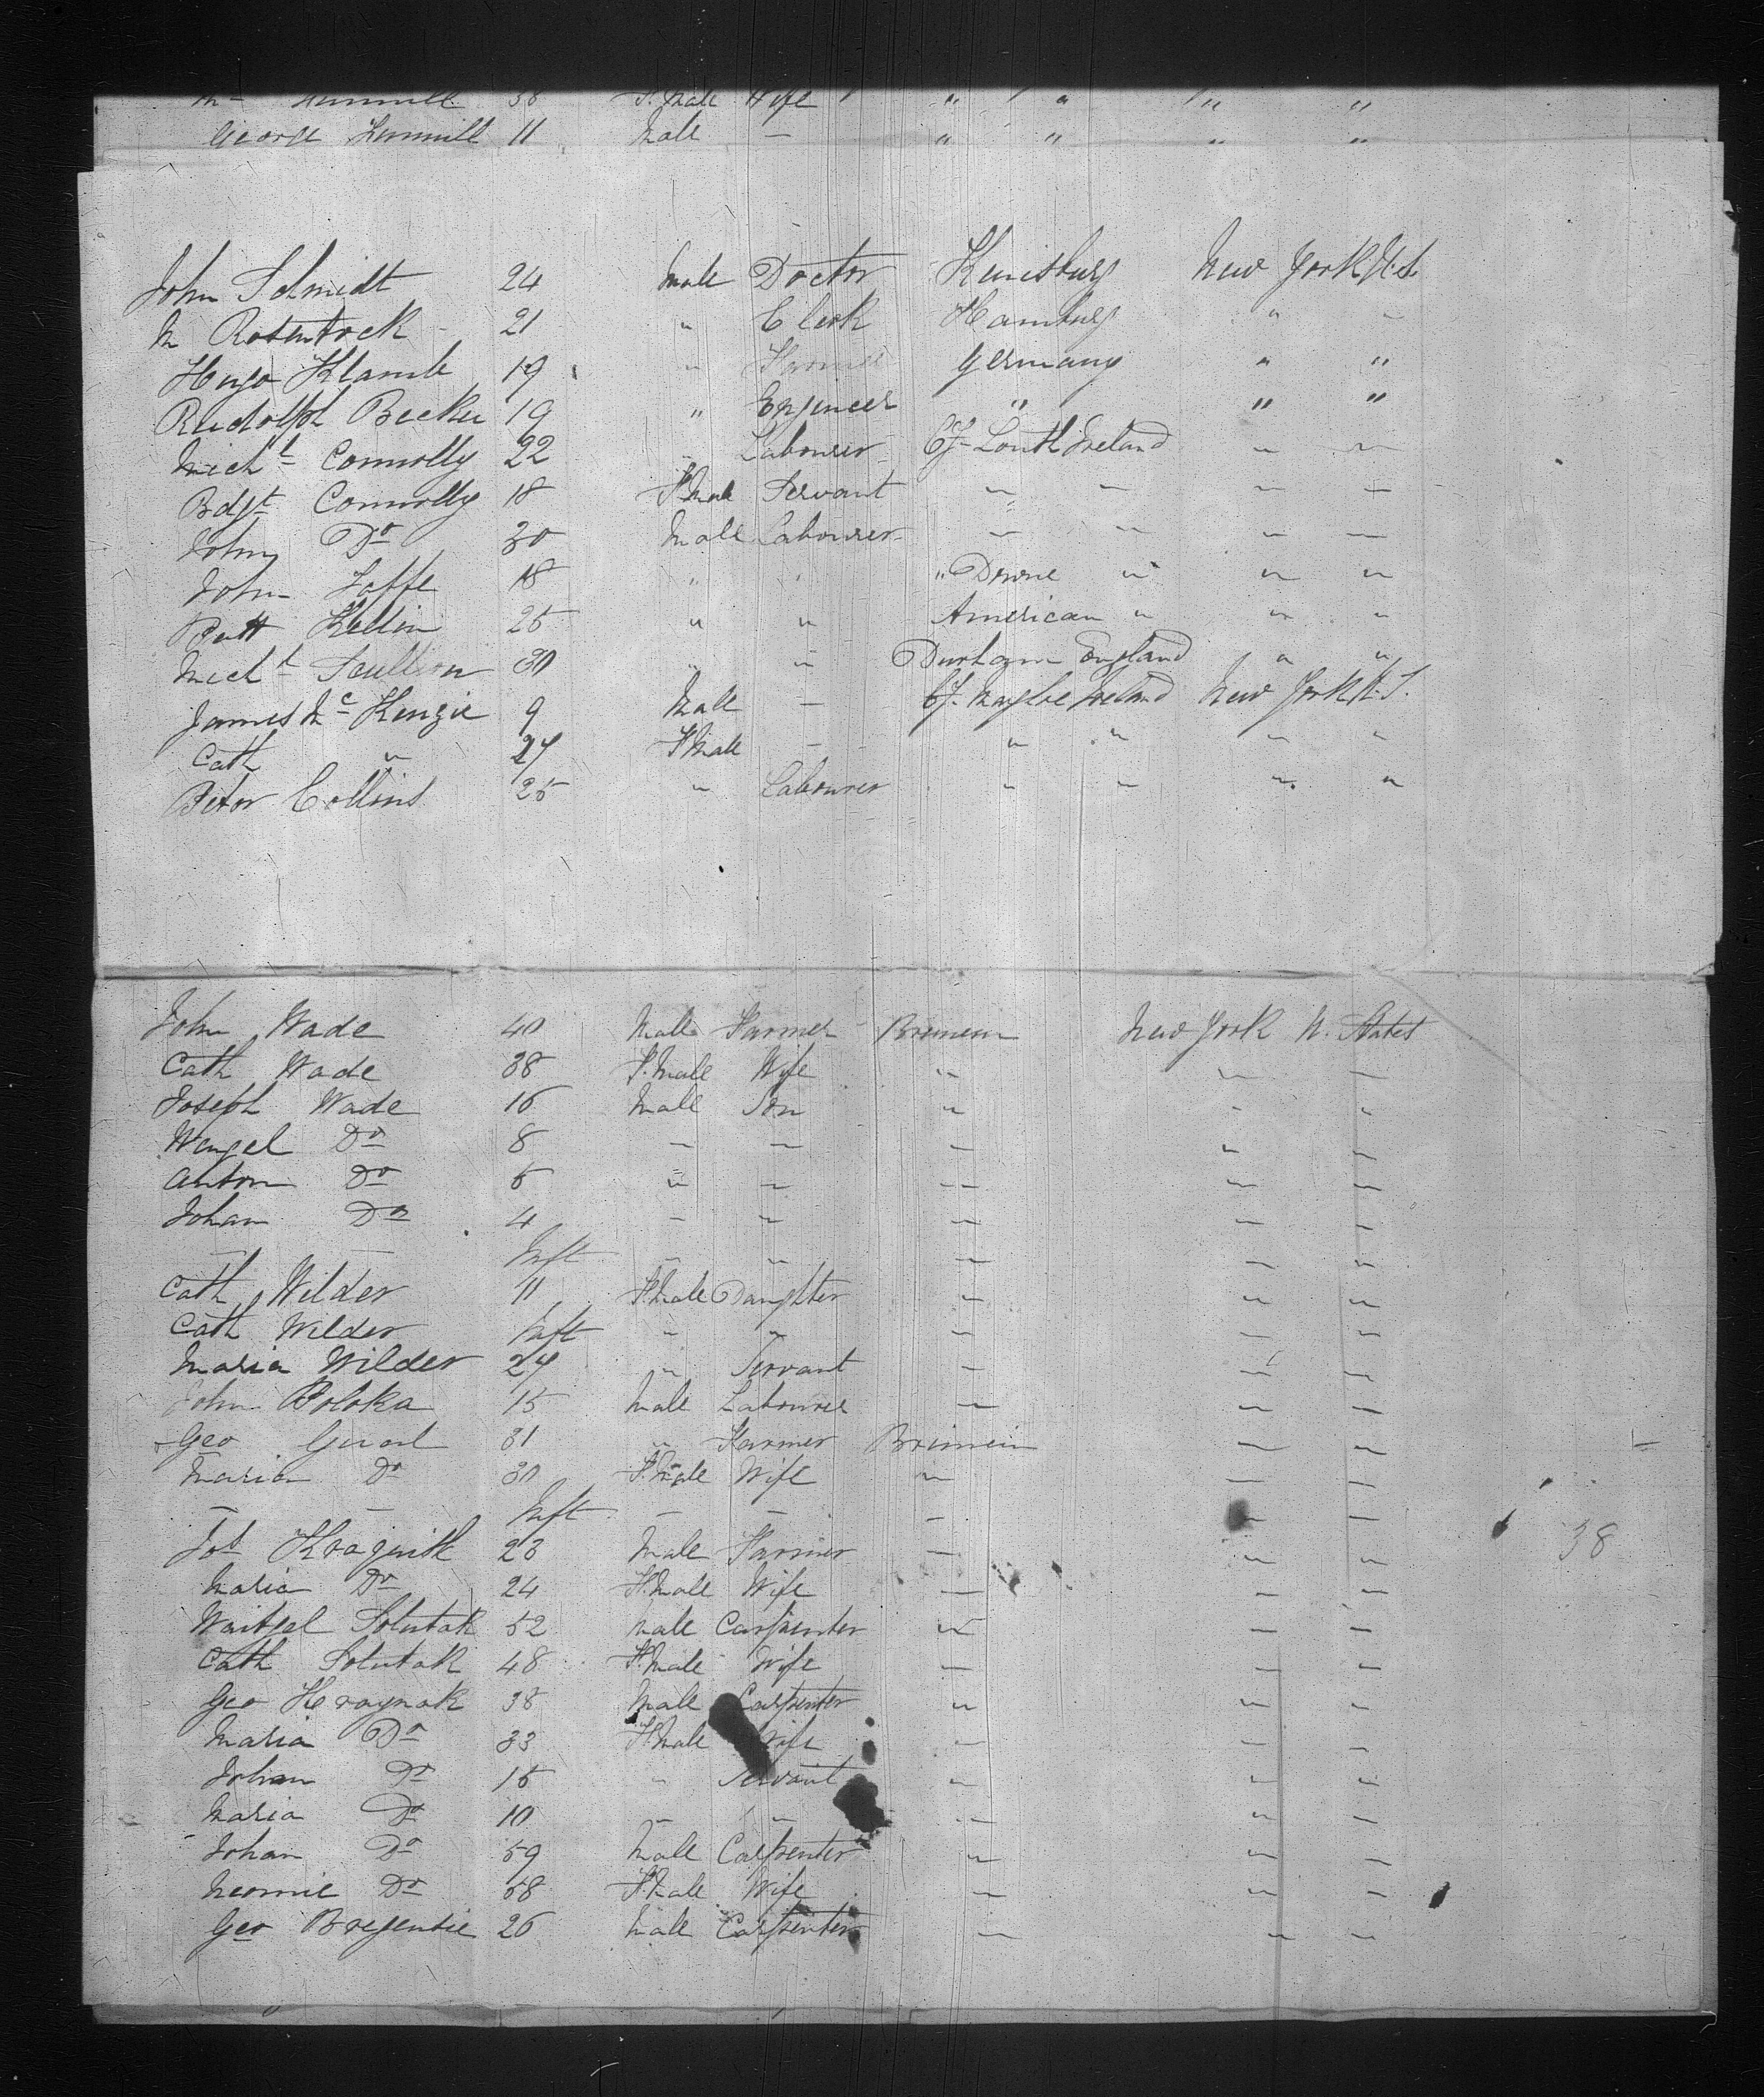 38 F. Male Wife " " " "
George 11 Male — " " " "
John Schmidt 24 Male Doctor New York U.S
M 21 " Clerk Hamburg " "
Hugo Klamb 19 " Farmer Germany " "
Rudolph Becker 19 " Engineer " " "
Michl Connolly 22 " Labourer Cy Louth Ireland " "
Bdgt Connolly 18 F Male Servant " " " "
John Do 30 Male Labourer " " " "
John 18 " " " Downe " " "
Patt 25 " " American " " "
Michl Scullion 30 " " Durham England " "
James Mc Kenzie 9 Male — Cy. Ireland New York U.S.
Cath " 27 F Male — " " " "
Peter Collins 25 " Labourer " " " "
John Wade 40 Male Farmer Bremein New York U. States
Cath Wade 38 F. Male Wife " " "
Joseph Wade 16 Male Son " " "
Wenzel Do 8 " " " " "
Anton Do 5 " " " " "
Johan Do 4 " " " " "
— — Inft " " " " "
Cath Wilder 11 F Male Daughter " " "
Cath Wilder Inft " " " " "
Maria Wilder 27 " Servant " " "
John Poloka 15 Male Labourer " " "
Geo 31 " Farmer Bremein " "
Maria Do 30 F. Male Wife " " "
— — Inft — — " " "
38
23 Male Farmer " " "
Maria Do 24 F. Male Wife " " "
52 Male Carpenter " " "
Cath 48 F. Male Wife " " "
Geo 38 Male Carpenter " " "
Maria Do 33 F. Male Wife " " "
Johan Do 15 " Servant " " "
Maria Do 10 " " " " "
Johan Do 59 Male Carpenter " " "
Do 58 F. Male Wife " " "
Geo 26 Male Carpenter " " "